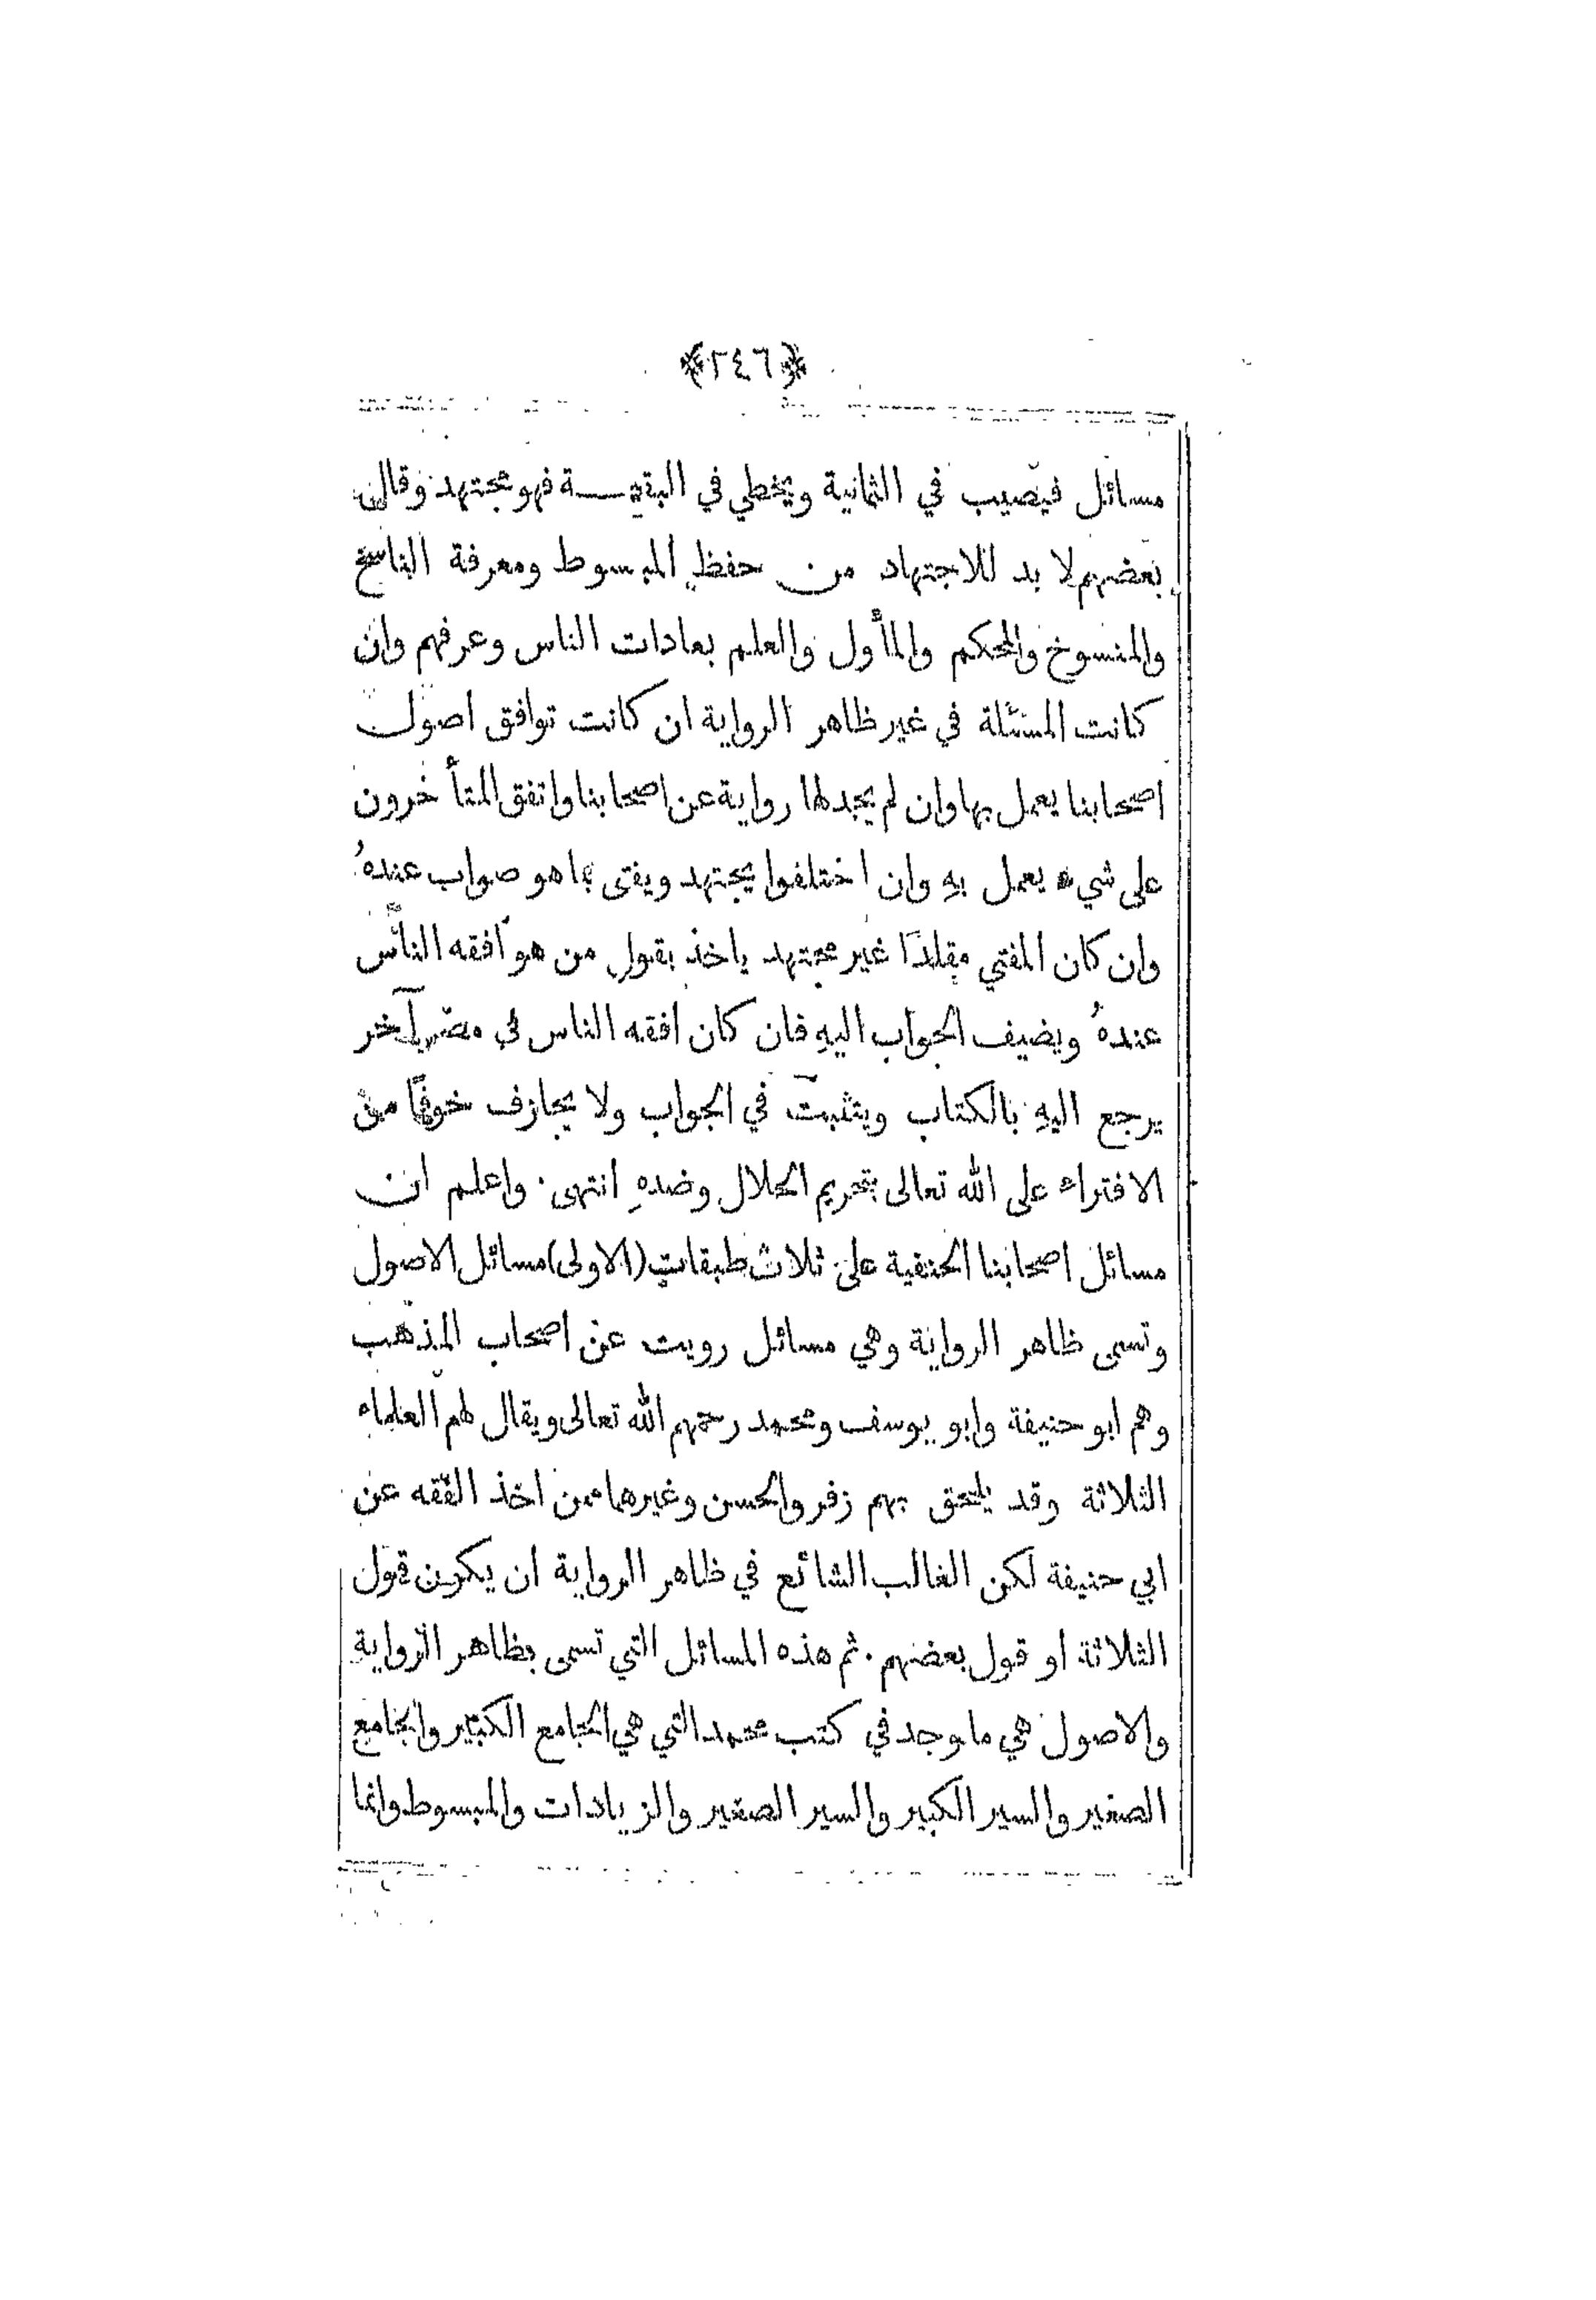 ﴿٢٤٦﴾
مسائل فيصيب في الثمانية ويخطي في البقيـــة فهو مجتهد وقال
بعضهم لا بد للاجتهاد من حفظ المبسوط ومعرفة الناسخ
والمنسوخ والمحكم والمأول والعلم بعادات الناس وعرفهم وان
كانت المسئلة في غير ظاهر الرواية ان كانت توافق اصول
اصحابنا يعمل بها وان لم يجد لها رواية عن اصحابنا واتفق المتأخرون
على شيء يعمل بهِ وان اختلفوا يجتهد ويفتى بما هو صواب عندهُ
وان كان المفتي مقلدًا غير مجتهد ياخذ بقول من هو افقه الناس
عندهُ ويضيف الجواب اليهِ فان كان افقه الناس في مصر آخر
يرجع اليهِ بالكتاب ويتثبت في الجواب ولا يجازف خوفًا من
الافتراء على الله تعالى بتحريم الحلال وضدهِ انتهى ٠ واعلم ان
مسائل اصحابنا الحنفية على ثلاث طبقات (الاولى) مسائل الاصول
وتسمى ظاهر الرواية وهي مسائل رويت عن اصحاب المذهب
وهم ابو حنيفة وابو يوسف ومحمد رحمهم الله تعالى ويقال لهم العلماء
الثلاثة وقد يلحق بهم زفر والحسن وغيرهما ممن اخذ الفقه عن
ابي حنيفة لكن الغالب الشائع في ظاهر الرواية ان يكون قول
الثلاثة او قول بعضهم ٠ ثم هذه المسائل التي تسمى بظاهر الرواية
والاصول هي ما وجد في كتب محمد التي هي الجامع الكبير والجامع
الصغير والسير الكبير والسير الصغير والزيادات والمبسوط وانما